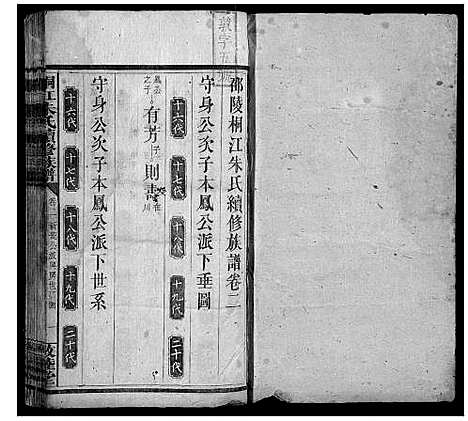 邵陵桐江朱氏續修族譜卷二
守身公次子本鳳公派下垂圖
十六代 十七代 十八代 十九代 二十代
鳳公之子 有芳 子一 則壽
守身公次子本鳳公派下世系
十六代 十七代 十八代 十九代 二十代
桐江朱氏續修族譜 卷二